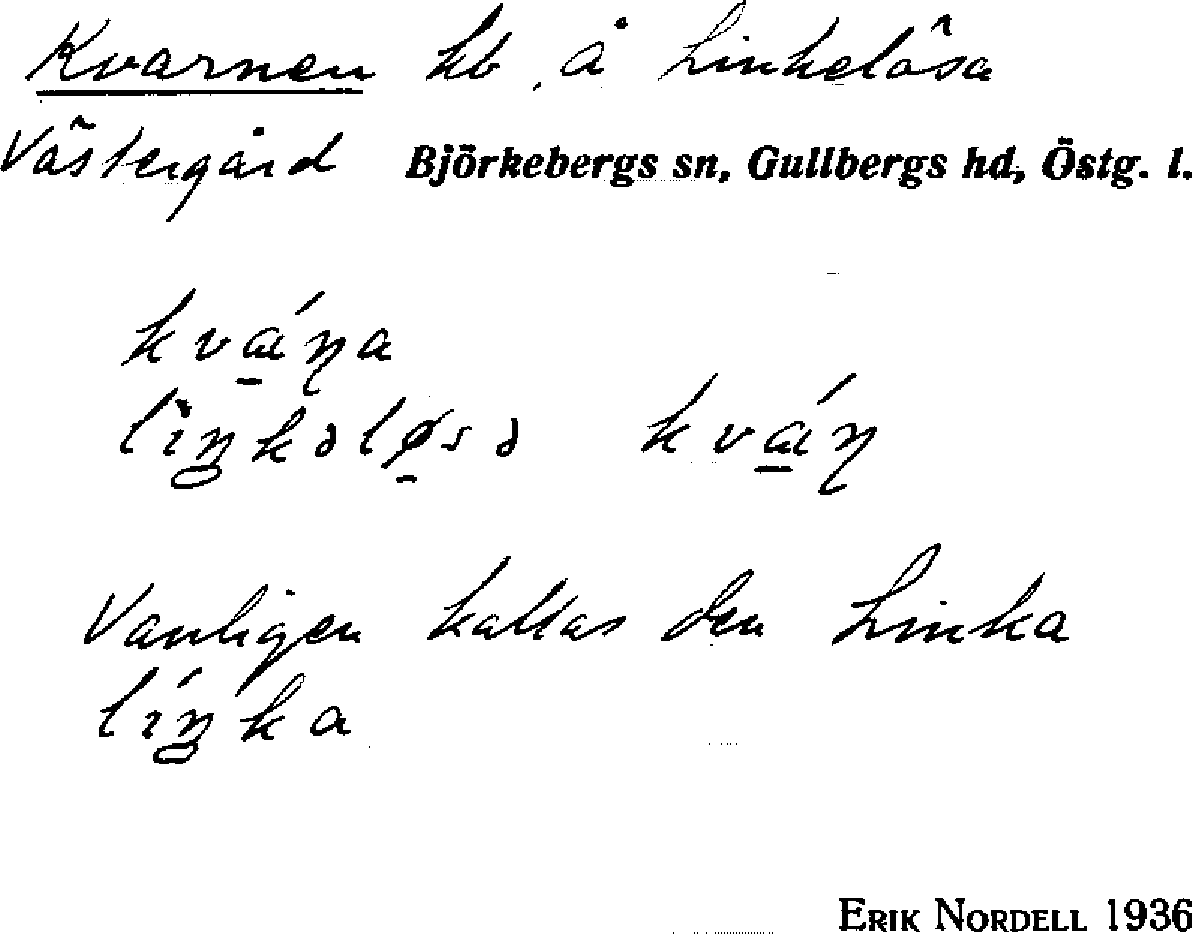 Kvarnen hb. å Linkelösa
Västergård Björkebergs sn, Gullbergs hd, Östg. l.
kvɑ̱́ɳa
lìŋkəlø̱sə kvɑ̱́ɳ
Vanligen kallas den Linka
líŋka
ERIK NORDELL 1936